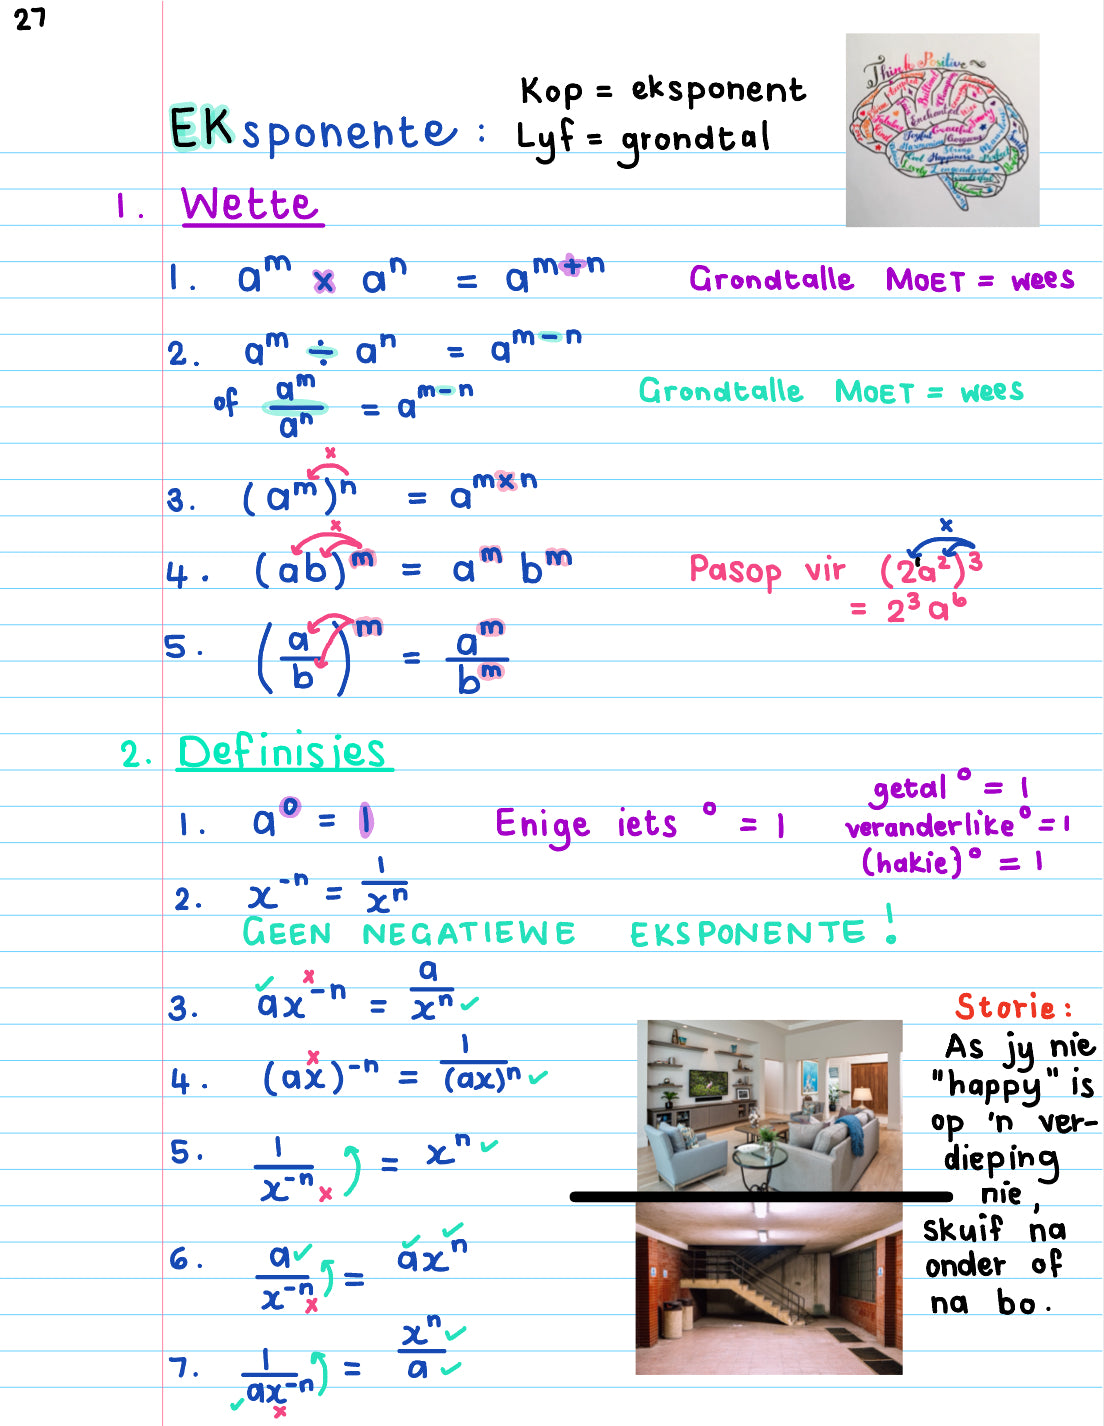 27
EKsponente : Kop = eksponent
Lyf = grondtal
Think Positive
1. Wette
1. a^m x a^n = a^(m+n) Grondtalle MOET = wees
2. a^m ÷ a^n = a^(m-n)
of a^m/a^n = a^(m-n) Grondtalle MOET = wees
x
3. (a^m)^n = a^(m×n)
x x
4. (ab)^m = a^m b^m Pasop vir (2a^2)^3
= 2^3 a^6
5. (a/b)^m = a^m/b^m
2. Definisies
1. a^0 = 1 Enige iets ^0 = 1
getal^0 = 1
veranderlike^0 = 1
(hakie)^0 = 1
2. x^-n = 1/x^n
GEEN NEGATIEWE EKSPONENTE!
3. ✓ax^-n x = a/x^n ✓
4. (ax)^-n x = 1/(ax)^n ✓
5. 1/x^-n x = x^n ✓
6. a✓/x^-n x = a✓x^n✓
7. 1/✓ax^-n x = x^n✓/a✓
Storie:
As jy nie
"happy" is
op 'n ver-
dieping
nie,
skuif na
onder of
na bo.